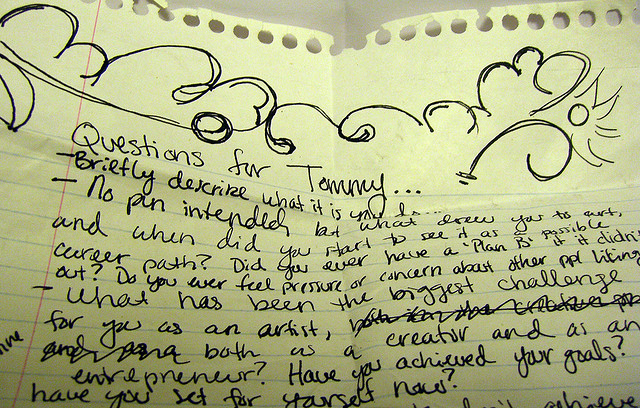 Questions for Tommy...
- Briefly describe what it is you do...
- No pun intended, but what drew you to art,
and when did you start to see it as a possible
career path? Did you ever have a "Plan B" if it didn't
out? Do you ever feel pressure or concern about other ppl liking
- What has been the biggest challenge
for you as an artist,
both as a creator and as an
entrepreneur? Have you achieved your goals?
have you set for yourself now?
achieve